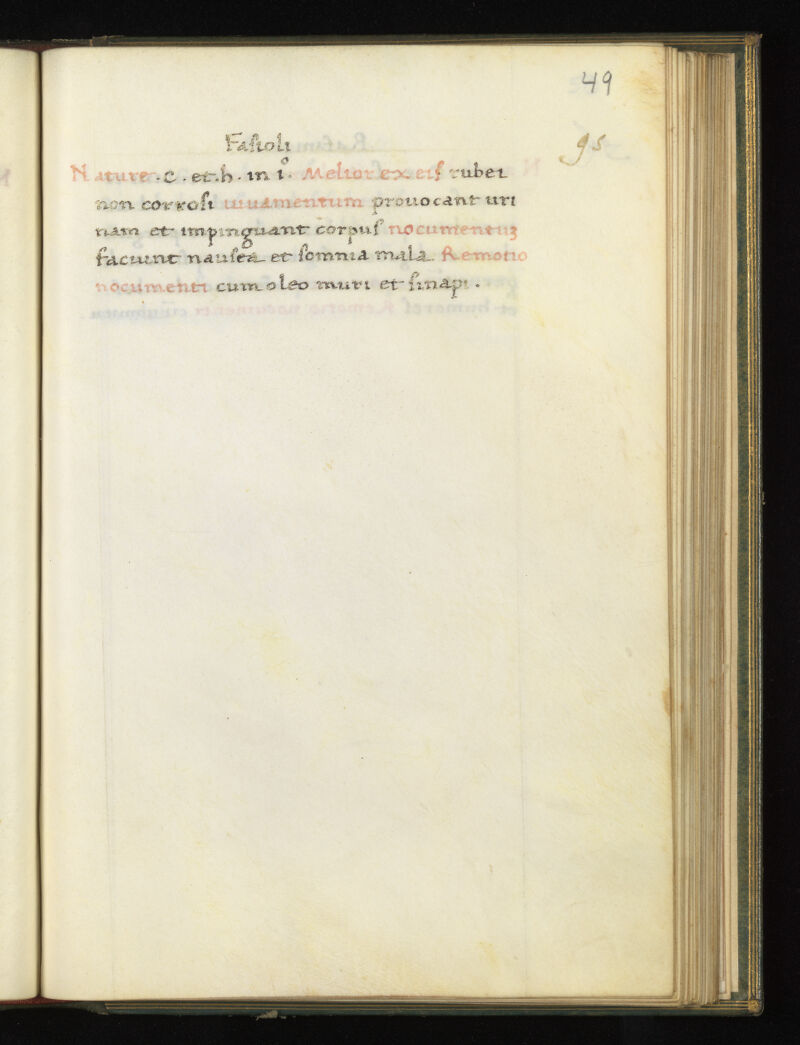 49
95
Fasioli
Nature .c. et .h. in i°. Melior ex eis rubei
non corrosi iuuamentum prouocant uri
nam et impinguant corpus nocumentuʒ
faciunt nausea et somnia mala. Remotio
nocumenti cum oleo muri et sinapi .